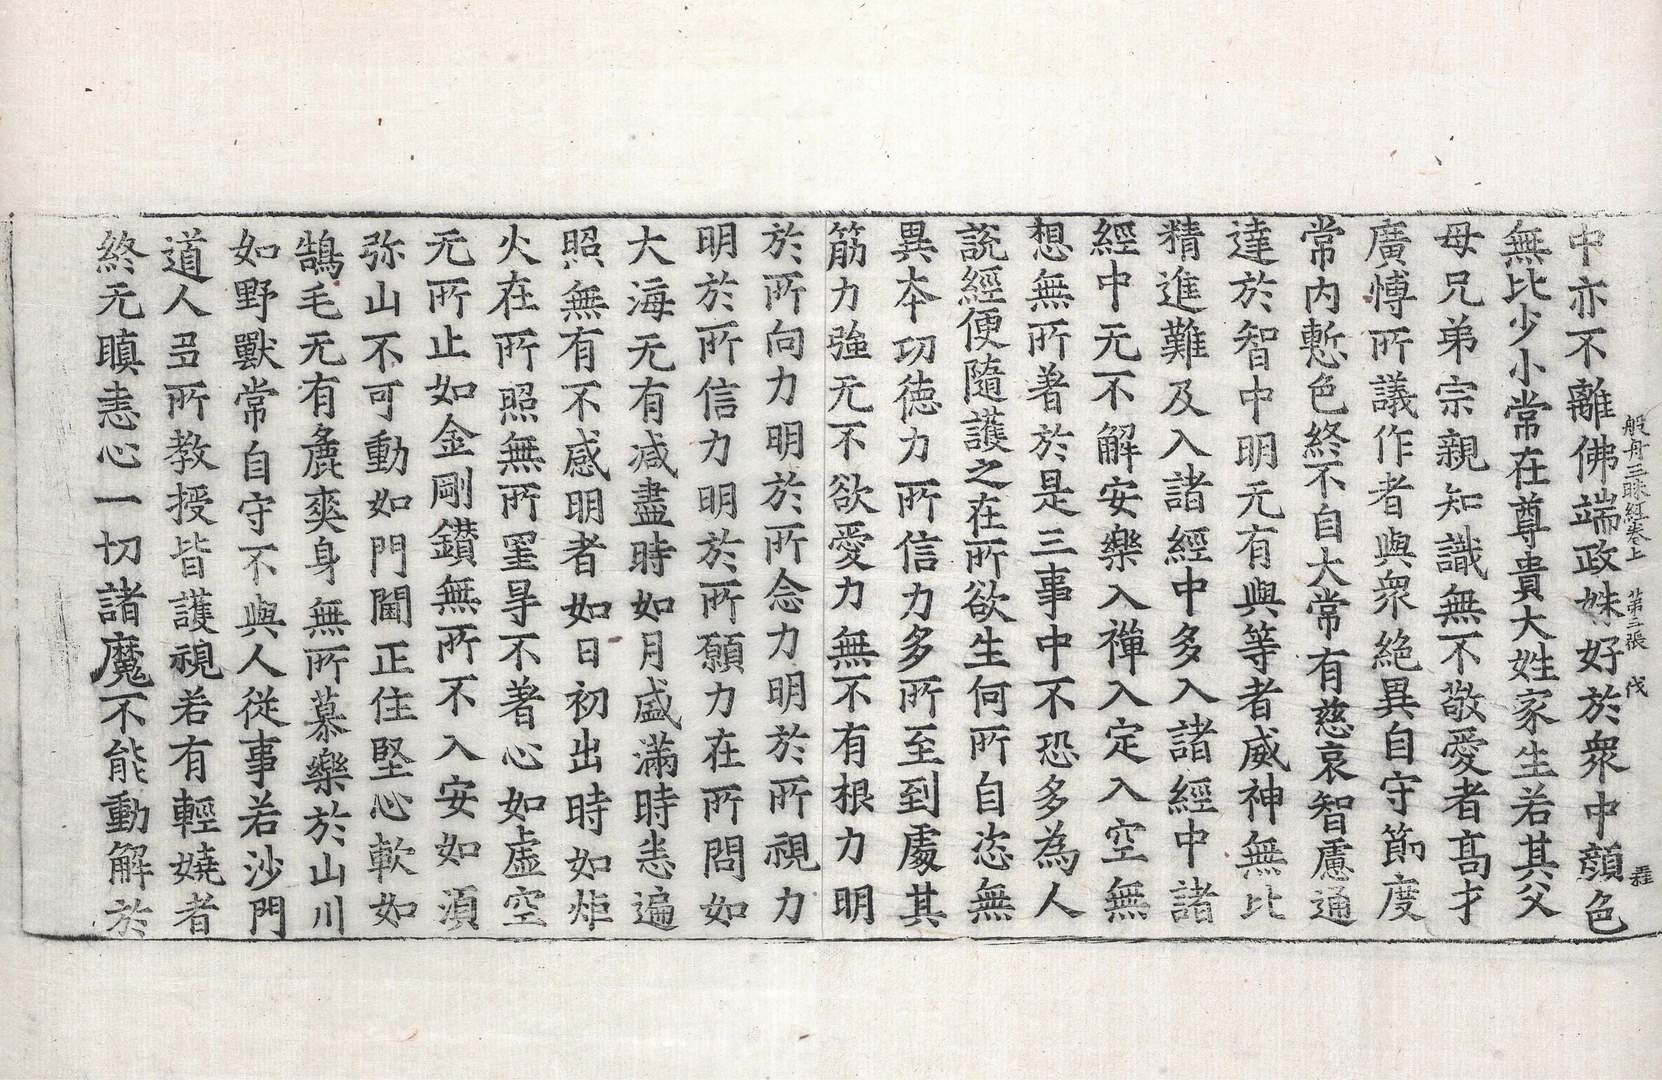 般舟三昧經卷上 第二張 伐 程
中亦不離佛端政姝好於衆中顔色
無比少小常在尊貴大姓家生若其父
母兄弟宗親知識無不敬愛者高才
廣愽所議作者與衆絶異自守節度
常内慙色終不自大常有慈哀智慮通
達於智中明无有與等者威神無比
精進難及入諸經中多入諸經中諸
經中无不解安樂入禪入定入空無
想無所著於是三事中不恐多為人
說經便隨護之在所欲生何所自恣無
異本功德力所信力多所至到處其
筋力強无不欲愛力無不有根力明
於所向力明於所念力明於所視力
明於所信力明於所願力在所問如
大海无有減盡時如月盛滿時悉遍
照無有不感明者如日初出時如炬
火在所照無所罣㝵不著心如虛空
无所止如金剛鑚無所不入安如湏
弥山不可動如門閫正住堅心軟如
鵠毛无有麁爽身無所慕樂於山川
如野獸常自守不與人從事若沙門
道人多所教授皆護視若有輕嬈者
終无瞋恚心一切諸魔不能動解於